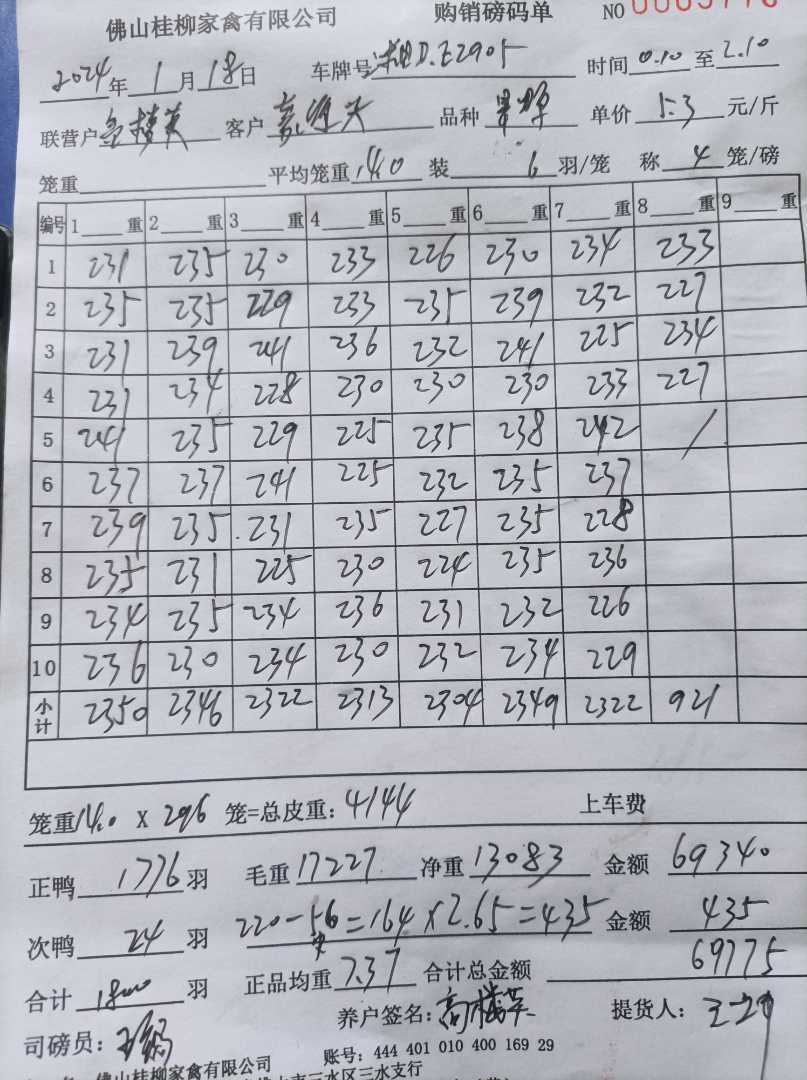 佛山桂柳家禽有限公司 购销磅码单 NO
2024年 1月 18日 车牌号 D.E2905 时间 0.10 至 2.10
联营户 客户 品种 单价 5.3 元/斤
笼重 平均笼重 14.0 装 6 羽/笼 称 4 笼/磅
编号 1 重 2 重 3 重 4 重 5 重 6 重 7 重 8 重 9 重
1 231 235 230 233 226 230 234 233
2 235 235 229 233 235 239 232 227
3 231 239 241 236 232 241 225 234
4 231 234 228 230 230 230 233 227
5 241 235 229 225 235 238 242 /
6 237 237 241 225 232 235 237
7 239 235 231 235 227 235 228
8 235 231 225 230 224 235 236
9 234 235 234 236 231 232 226
10 236 230 234 230 232 234 229
小计 2350 2346 2322 2313 2304 2349 2322 921
笼重14.0 X 296 笼=总皮重: 4144 上车费
正鸭 1776 羽 毛重 17227 净重 13083 金额 69340
次鸭 24 羽 220-56=164×2.65=435 金额 435
合计 1800 羽 正品均重 7.37 合计总金额 69775
司磅员: 养户签名: 提货人:
佛山桂柳家禽有限公司 账号: 444 401 010 400 169 29
三水区三水支行